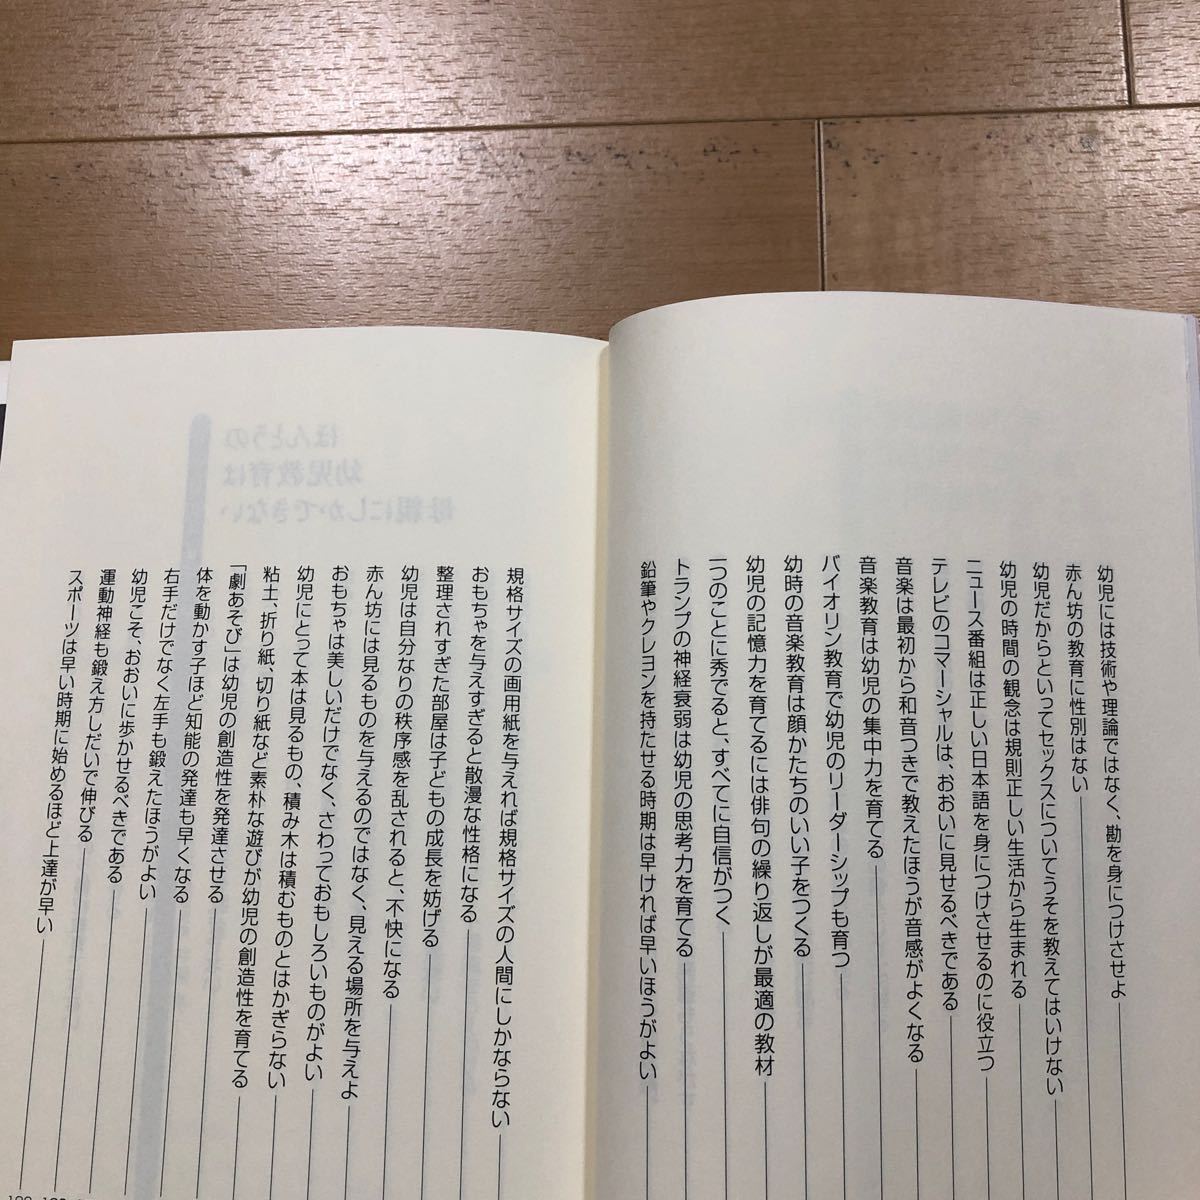 幼児には技術や理論ではなく、勘を身につけさせよ
赤ん坊の教育に性別はない
幼児だからといってセックスについてうそを教えてはいけない
幼児の時間の観念は規則正しい生活から生まれる
ニュース番組は正しい日本語を身につけさせるのに役立つ
テレビのコマーシャルは、おおいに見せるべきである
音楽は最初から和音つきで教えたほうが音感がよくなる
音楽教育は幼児の集中力を育てる
バイオリン教育で幼児のリーダーシップも育つ
幼時の音楽教育は顔かたちのいい子をつくる
幼児の記憶力を育てるには俳句の繰り返しが最適の教材
一つのことに秀でると、すべてに自信がつく
トランプの神経衰弱は幼児の思考力を育てる
鉛筆やクレヨンを持たせる時期は早ければ早いほうがよい
規格サイズの画用紙を与えれば規格サイズの人間にしかならない
おもちゃを与えすぎると散漫な性格になる
整理されすぎた部屋は子どもの成長を妨げる
幼児は自分なりの秩序感を乱されると、不快になる
赤ん坊には見るものを与えるのではなく、見える場所を与えよ
おもちゃは美しいだけでなく、さわっておもしろいものがよい
幼児にとって本は見るもの、積み木は積むものとはかぎらない
粘土、折り紙、切り紙など素朴な遊びが幼児の創造性を育てる
「劇あそび」は幼児の創造性を発達させる
体を動かす子ほど知能の発達も早くなる
右手だけでなく左手も鍛えたほうがよい
幼児こそ、おおいに歩かせるべきである
運動神経も鍛え方しだいで伸びる
スポーツは早い時期に始めるほど上達が早い
ほんとうの
幼児教育は
母親にしかできない